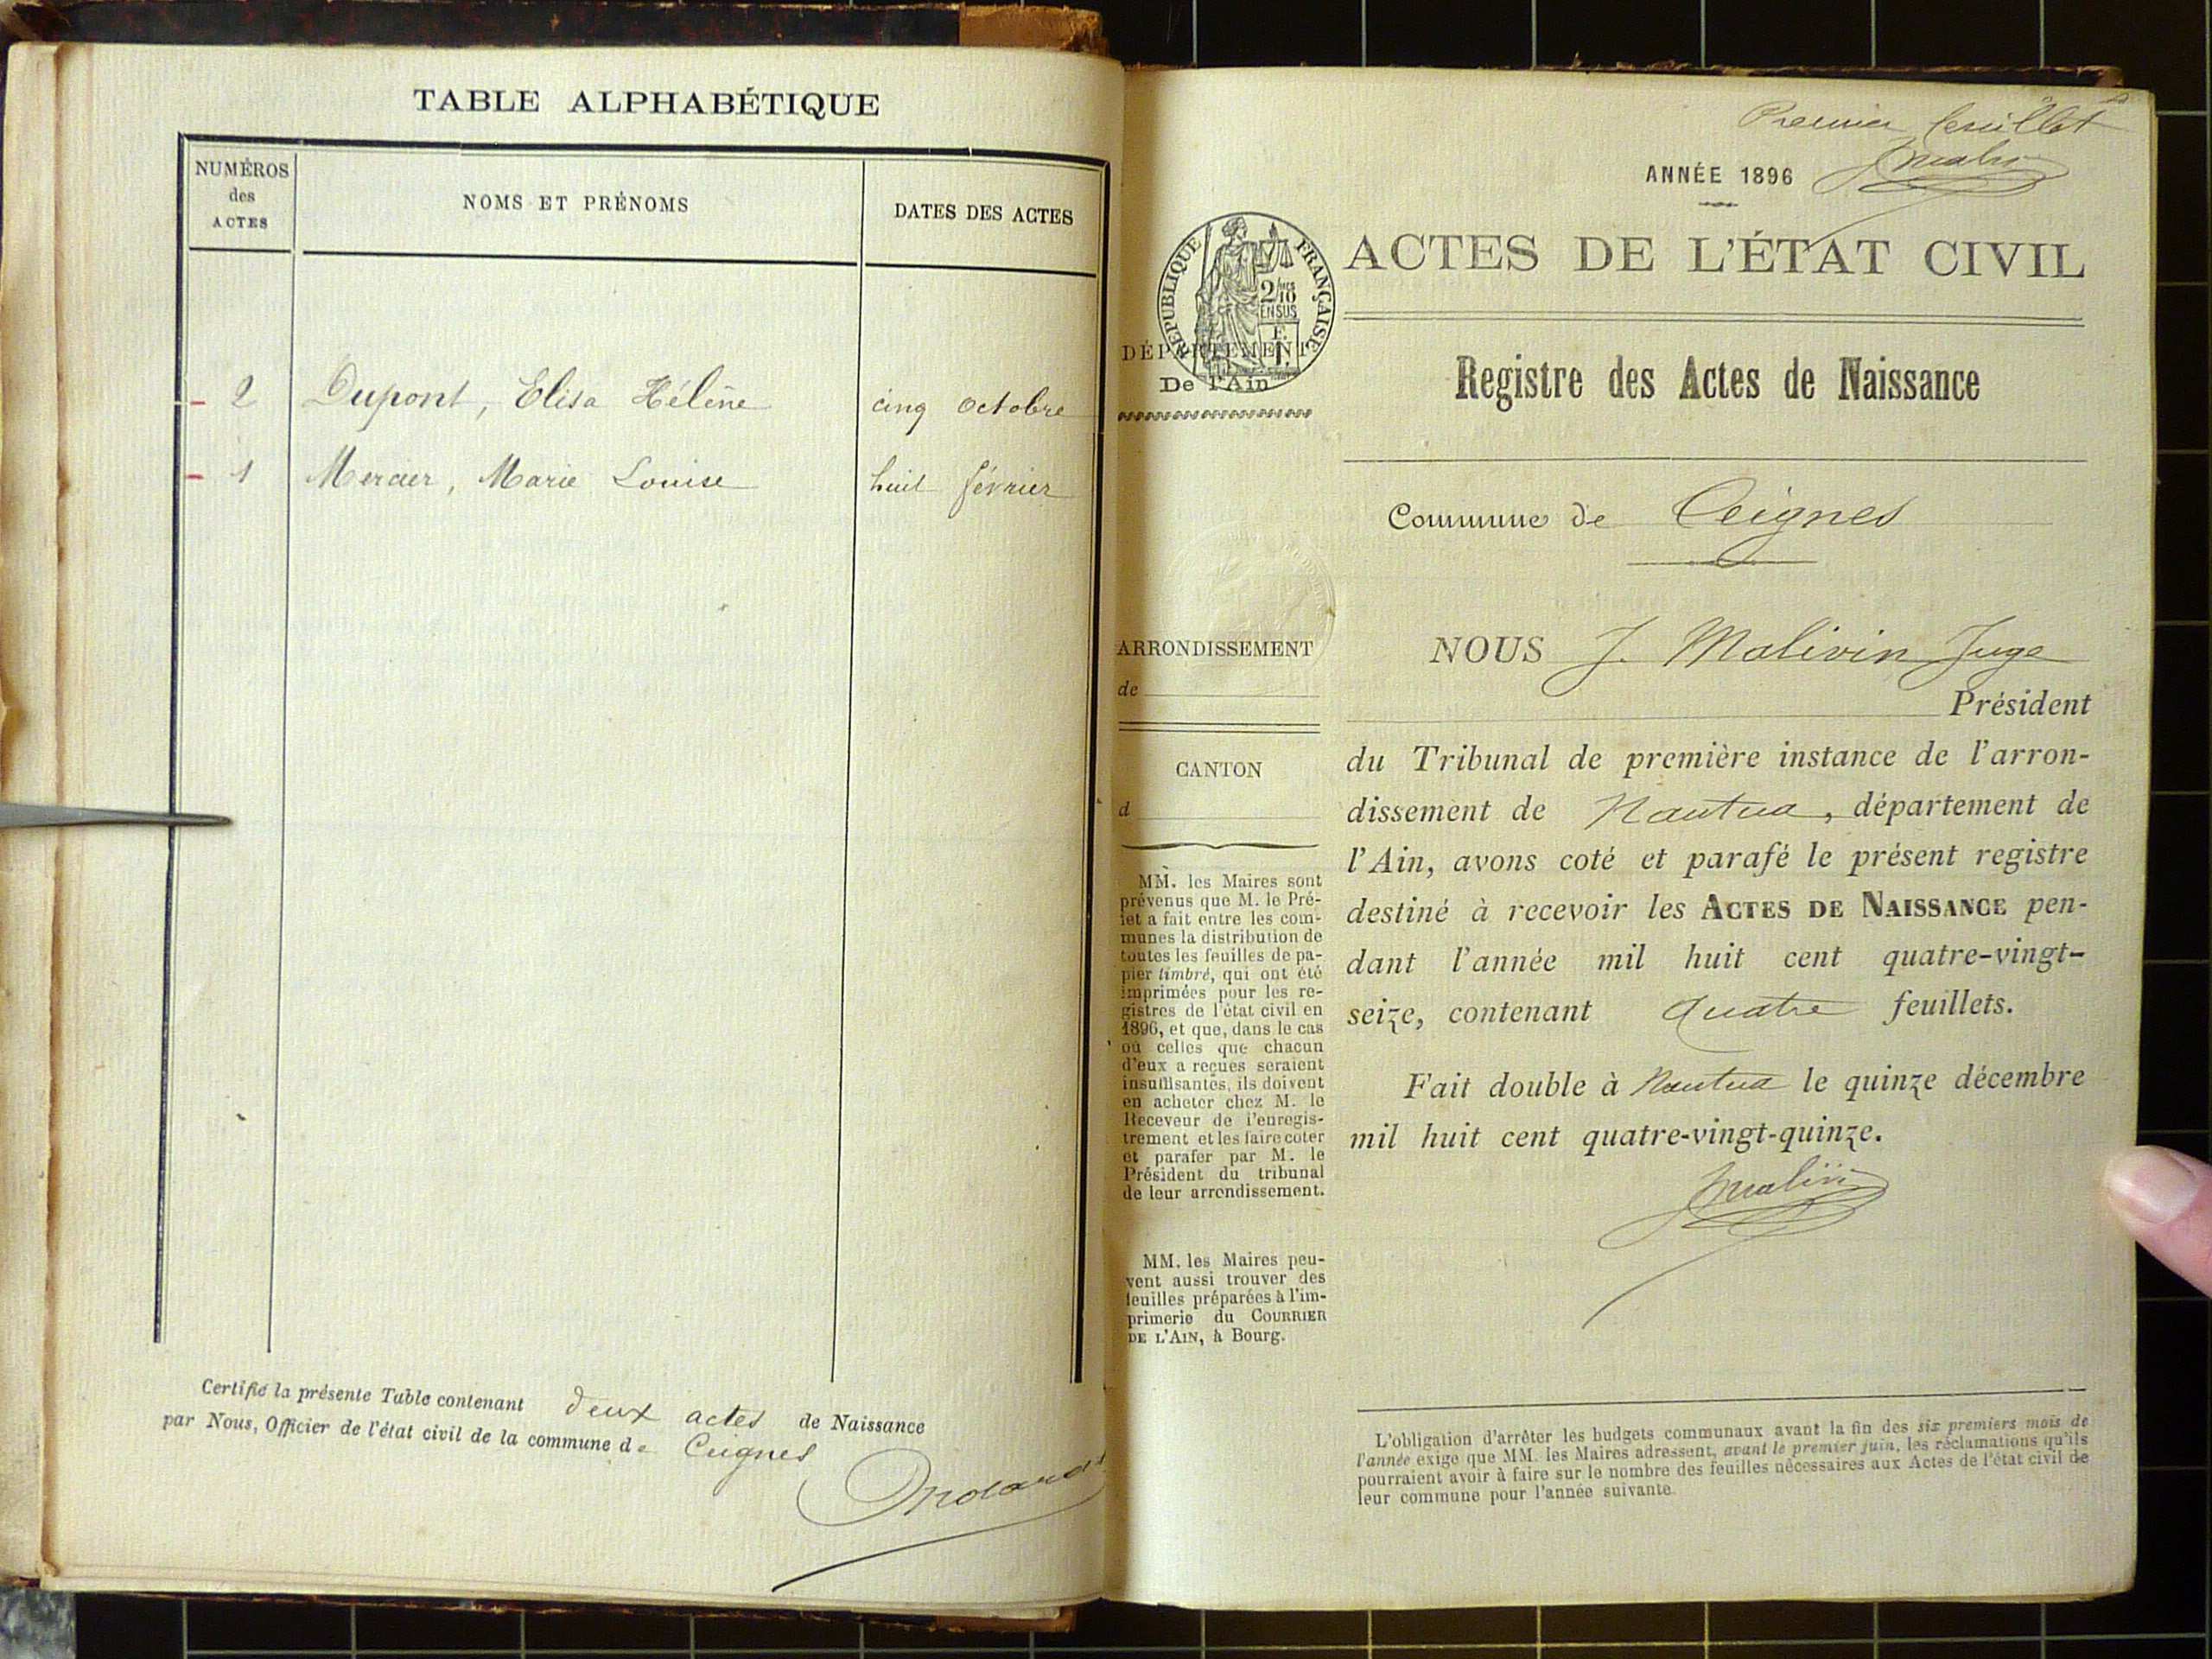 TABLE ALPHABÉTIQUE
NUMÉROS
des
ACTES
NOMS ET PRÉNOMS
DATES DES ACTES
2 Dupont, Elisa Hélène cinq octobre
1 Mercier, Marie Louise huit février
Certifié la présente Table contenant deux actes de Naissance
par Nous, Officier de l'état civil de la commune de Ceignes
Premier feuillet
ANNÉE 1896
ACTES DE L'ÉTAT CIVIL
RÉPUBLIQUE FRANÇAISE
2/10
EN SUS
DÉPARTEMENT
De l'Ain
Registre des Actes de Naissance
Commune de Ceignes
ARRONDISSEMENT
de
CANTON
d
NOUS J. Malivin Juge
Président
du Tribunal de première instance de l'arron-
dissement de Nantua, département de
l'Ain, avons coté et parafé le présent registre
destiné à recevoir les ACTES DE NAISSANCE pen-
dant l'année mil huit cent quatre-vingt-
seize, contenant quatre feuillets.
Fait double à Nantua le quinze décembre
mil huit cent quatre-vingt-quinze.
MM. les Maires sont
prévenus que M. le Pré-
fet a fait entre les com-
munes la distribution de
toutes les feuilles de pa-
pier timbré, qui ont été
imprimées pour les re-
gistres de l'état civil en
1896, et que, dans le cas
où celles que chacun
d'eux a reçues seraient
insuffisantes, ils doivent
en acheter chez M. le
Receveur de l'enregis-
trement et les faire coter
et parafer par M. le
Président du tribunal
de leur arrondissement.
MM. les Maires peu-
vent aussi trouver des
feuilles préparées à l'im-
primerie du COURRIER
DE L'AIN, à Bourg.
L'obligation d'arrêter les budgets communaux avant la fin des six premiers mois de
l'année exige que MM. les Maires adressent, avant le premier juin, les réclamations qu'ils
pourraient avoir à faire sur le nombre des feuilles nécessaires aux Actes de l'état civil de
leur commune pour l'année suivante.